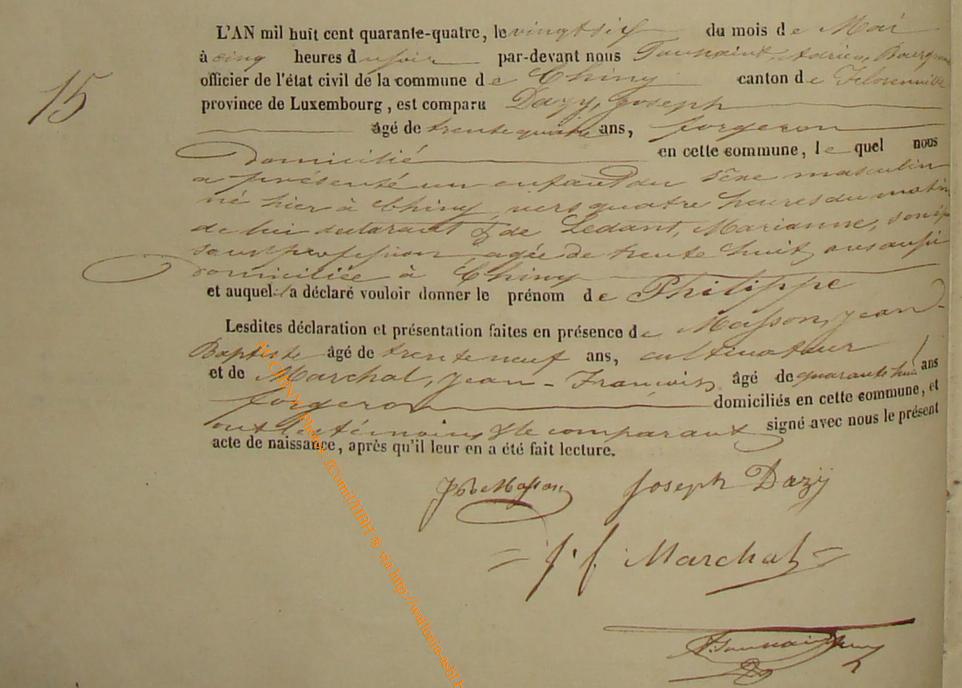 L'AN mil huit cent quarante-quatre, le vingt six du mois de Mai
15
à cinq heures du soir par-devant nous Toussaint, Adrien, Bourg
officier de l'état civil de la commune de Chiny canton de Florenville
province de Luxembourg, est comparu Dazy, Joseph
âgé de trente quatre ans, forgeron
domicilié en cette commune, le quel nous
a présenté un enfant du sexe masculin
né hier à Chiny, vers quatre heures du matin
de lui déclarant & de Ledant, Marianne, son
sans profession, agée de trente huit ans aussi
domiciliée à Chiny
et auquel il a déclaré vouloir donner le prénom de Philippe
Lesdites déclaration et présentation faites en présence de Masson, Jean-
Baptiste âgé de trente neuf ans, cultivateur
et de Marchal, Jean-François, âgé de quarante huit ans
forgeron domiciliés en cette commune, et
ont les témoins & le comparant signé avec nous le présent
acte de naissance, après qu'il leur en a été fait lecture.
JB Masson Joseph Dazÿ
J. f. Marchal